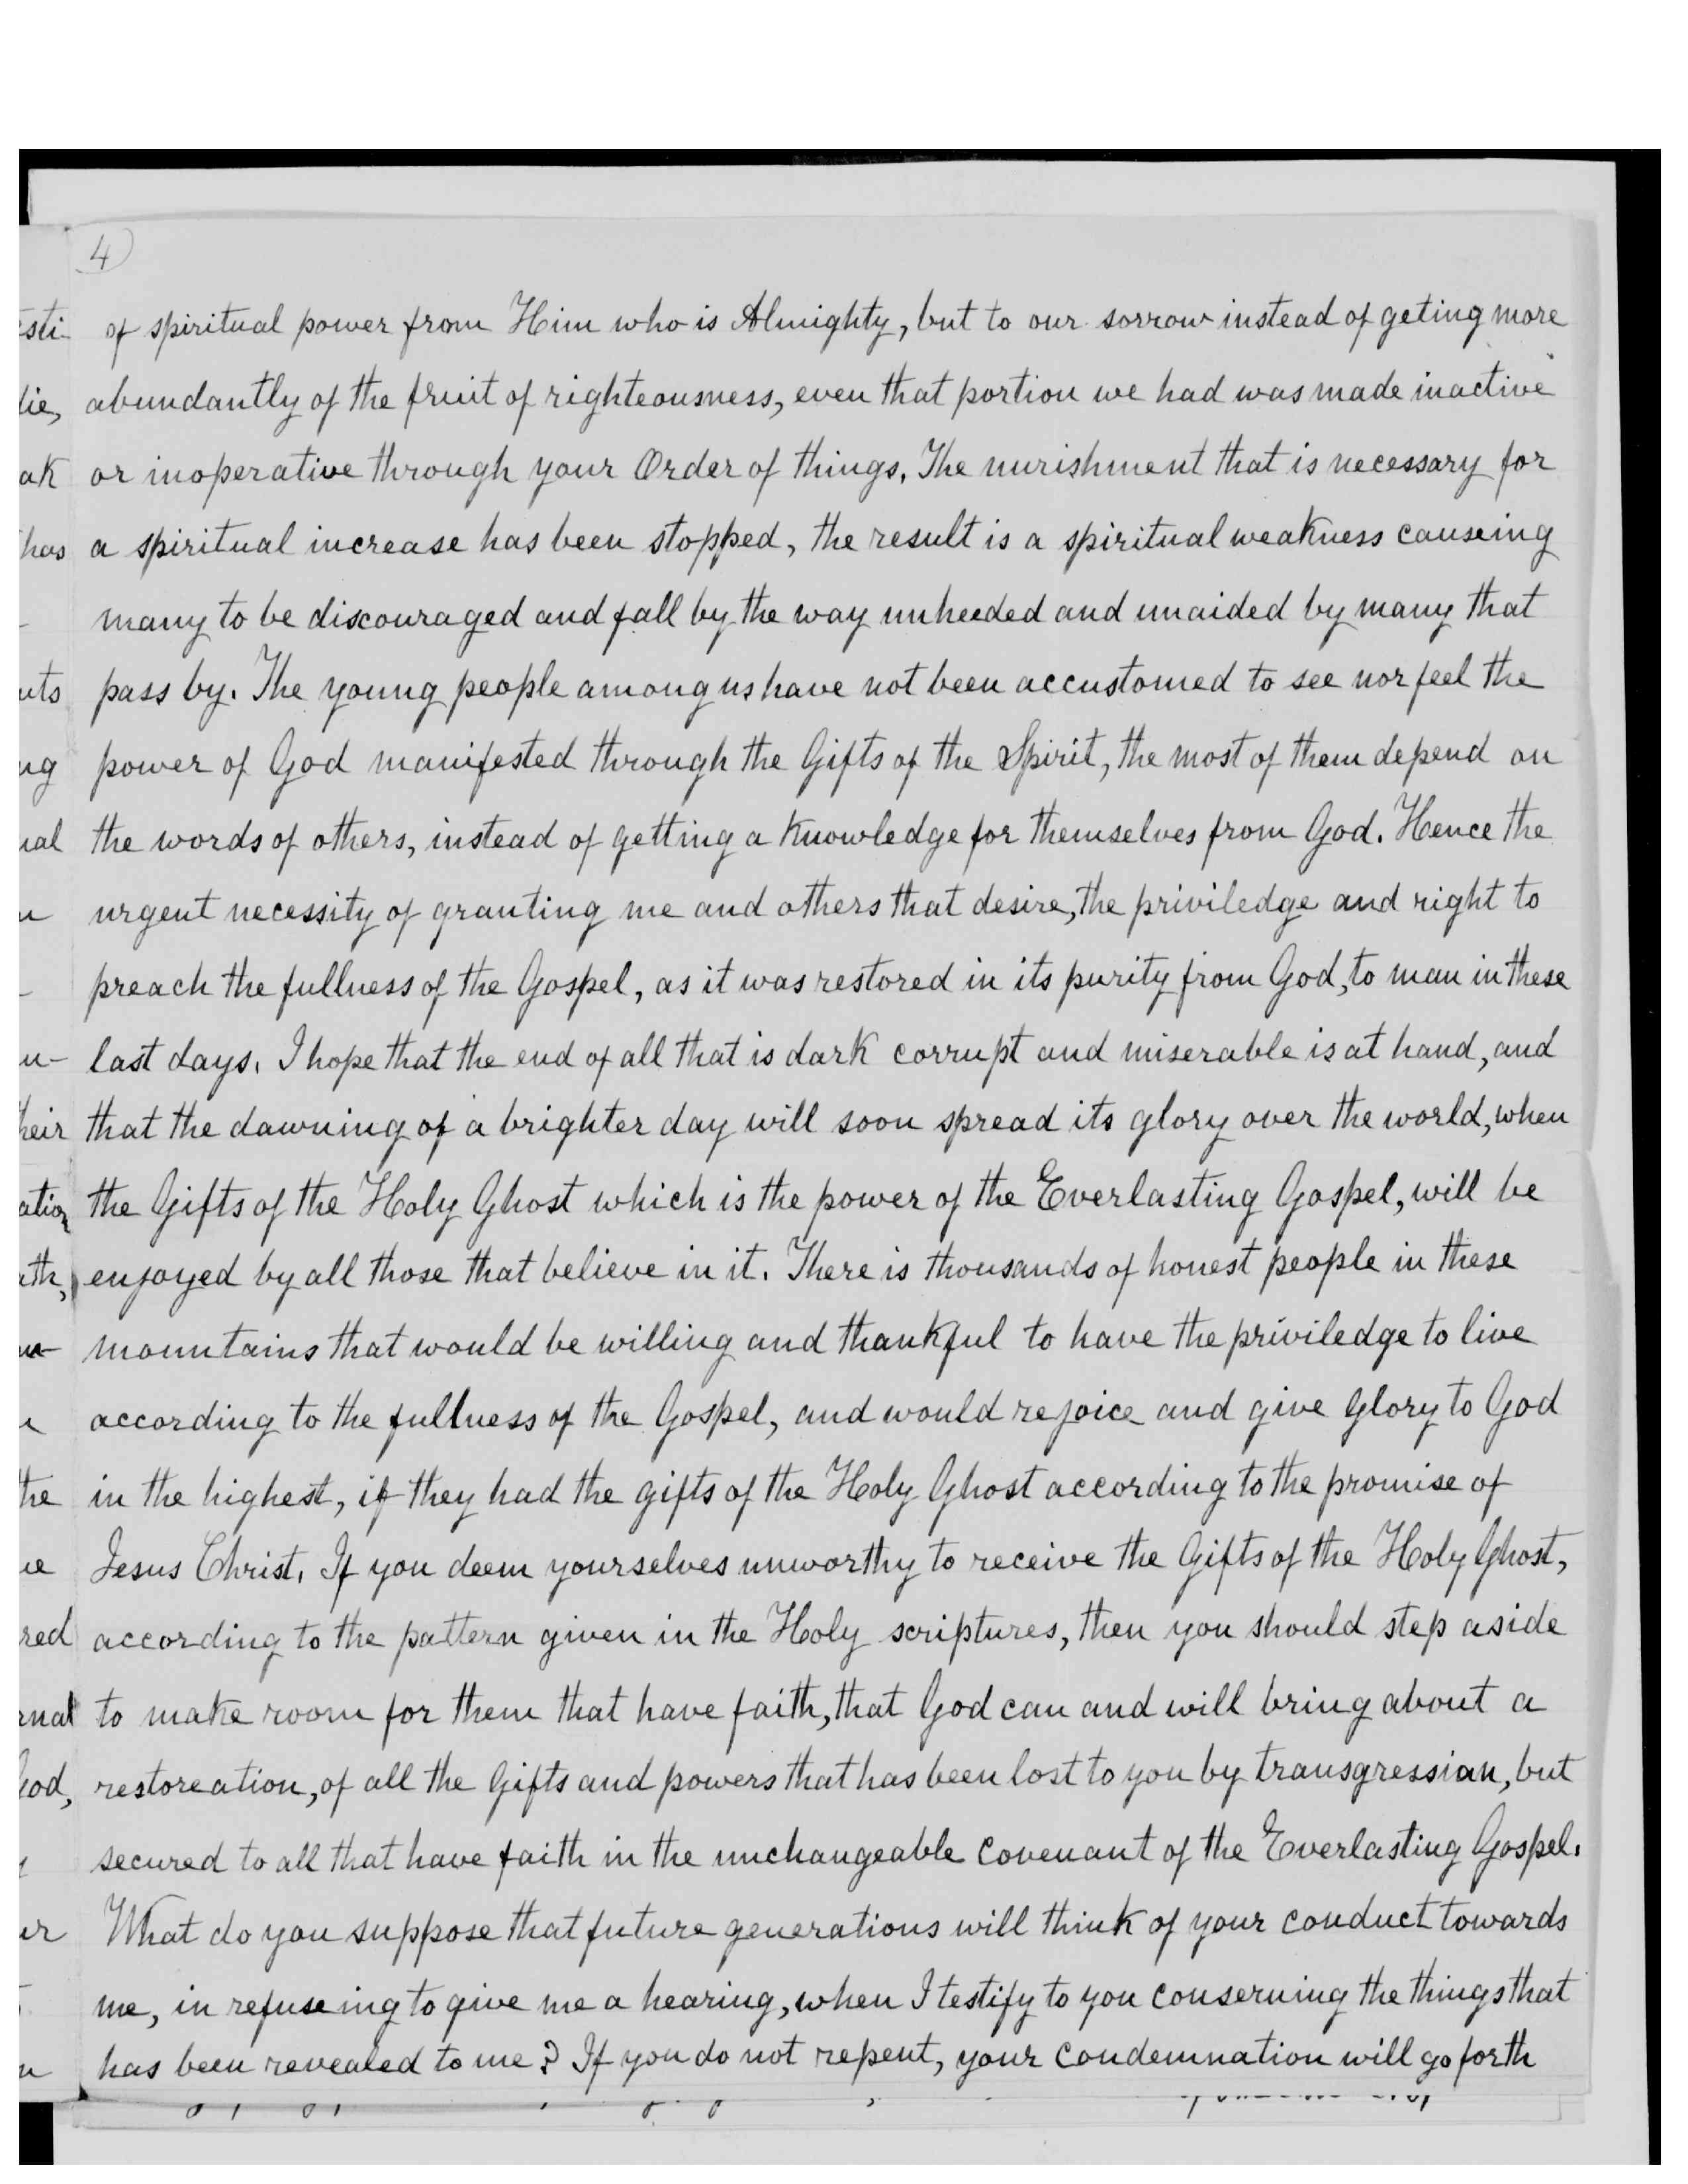 4)
of spiritual power from Him who is Almighty, but to our sorrow instead of geting more
abundantly of the fruit of righteousness, even that portion we had was made inactive
or inoperative through your Order of things. The nurishment that is necessary for
a spiritual increase has been stopped, the result is a spiritual weakness causeing
many to be discouraged and fall by the way unheeded and unaided by many that
pass by. The young people among us have not been accustomed to see nor feel the
power of God manifested through the Gifts of the Spirit, the most of them depend on
the words of others, instead of getting a knowledge for themselves from God. Hence the
urgent necessity of granting me and others that desire, the priviledge and right to
preach the fullness of the Gospel, as it was restored in its purity from God, to man in these
last days. I hope that the end of all that is dark corrupt and miserable is at hand, and
that the dawning of a brighter day will soon spread its glory over the world, when
the Gifts of the Holy Ghost which is the power of the Everlasting Gospel, will be
enjoyed by all those that believe in it. There is thousands of honest people in these
mountains that would be willing and thankful to have the priviledge to live
according to the fullness of the Gospel, and would rejoice and give glory to God
in the highest, if they had the gifts of the Holy Ghost according to the promise of
Jesus Christ. If you deem yourselves unworthy to receive the Gifts of the Holy Ghost,
according to the pattern given in the Holy scriptures, then you should step aside
to make room for them that have faith, that God can and will bring about a
restoreation, of all the Gifts and powers that has been lost to you by transgression, but
secured to all that have faith in the unchangeable covenant of the Everlasting Gospel.
What do you suppose that future generations will think of your conduct towards
me, in refuseing to give me a hearing, when I testify to you conserning the things that
has been revealed to me? If you do not repent, your condemnation will go forth